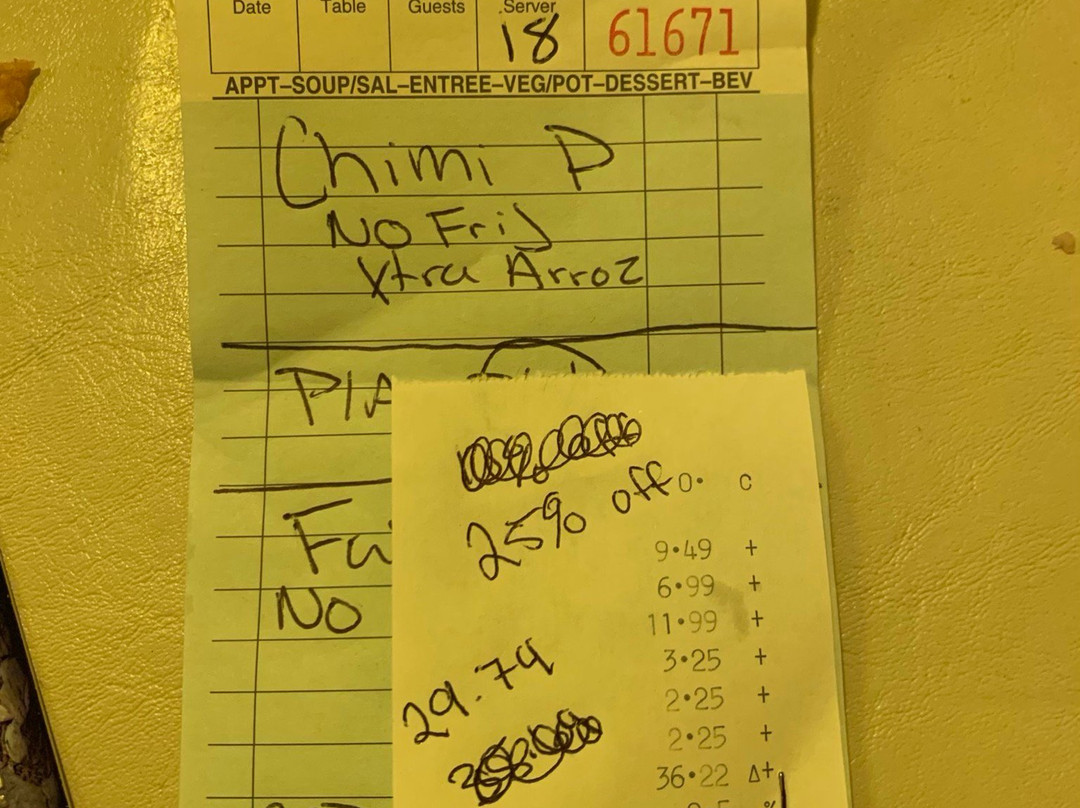 Date Table Guests Server
18 61671
APPT–SOUP/SAL–ENTREE–VEG/POT–DESSERT–BEV
Chimi P
No Frij
Xtra Arroz
25% off
0• C
9•49 +
6•99 +
11•99 +
3•25 +
2•25 +
2•25 +
36•22 Δ+
29.79
No